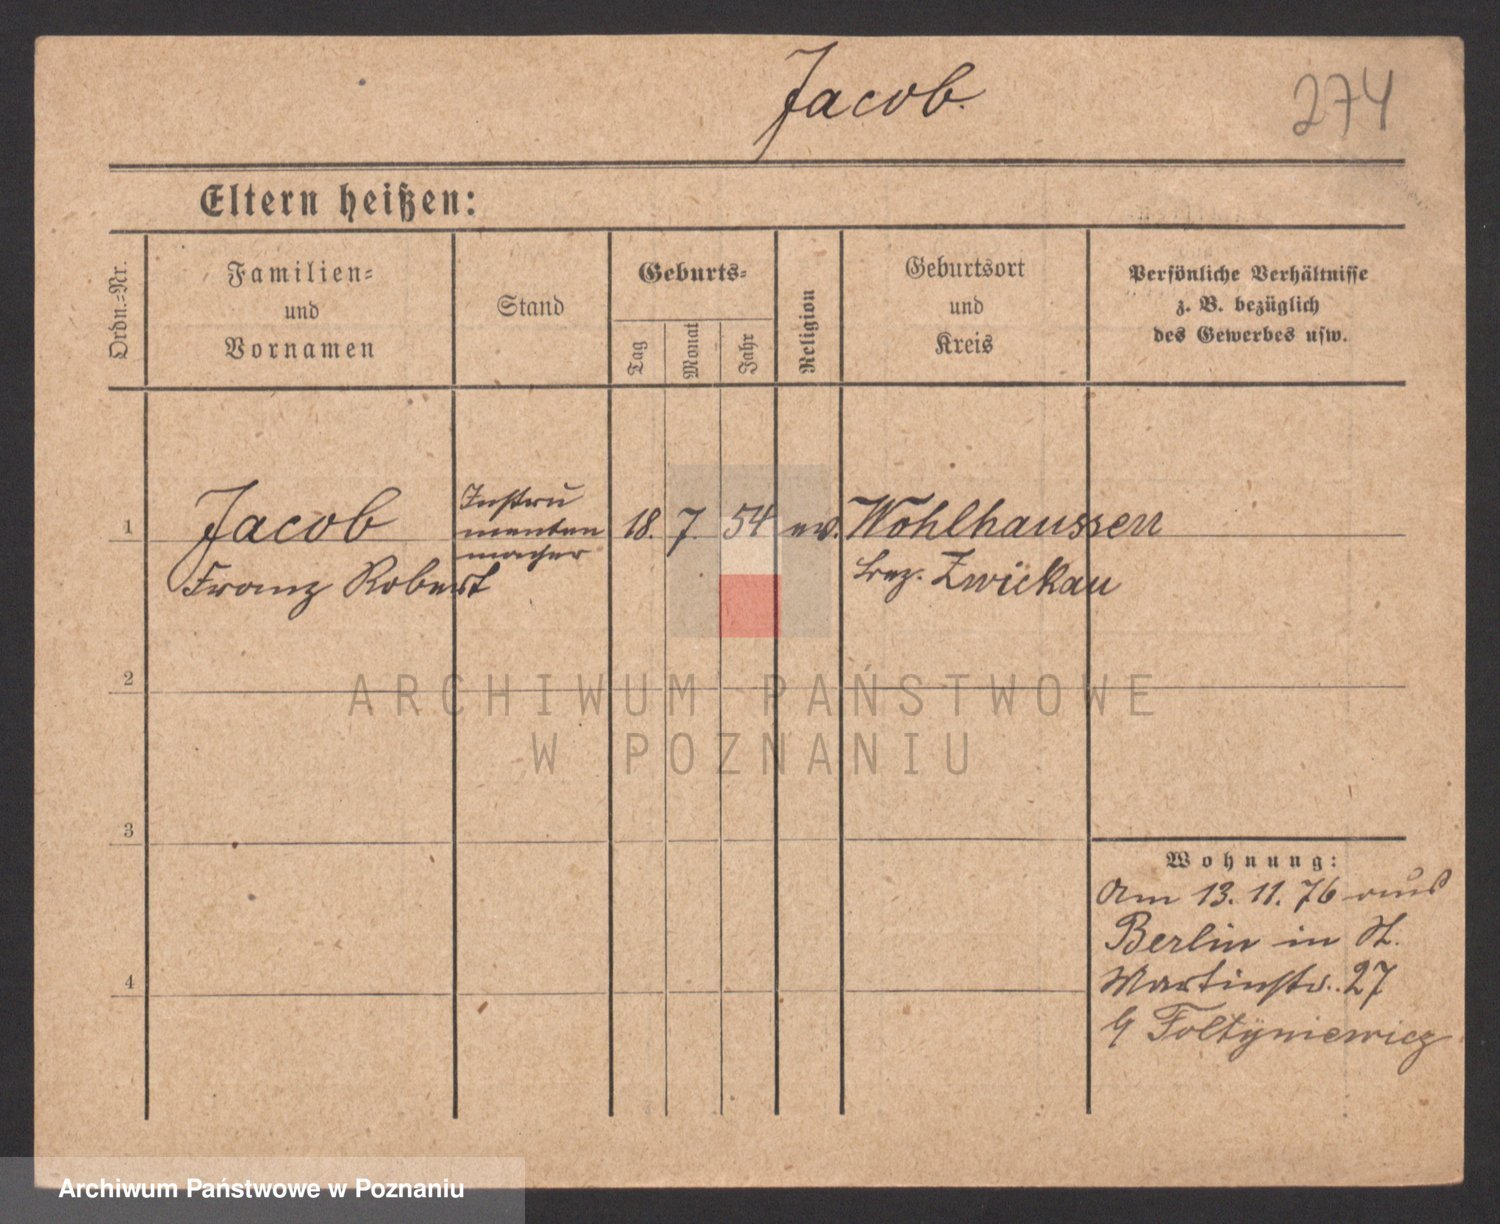 Jacob.
274
Eltern heißen:
Ordn.=Nr.
Familien=
und
Vornamen
Stand
Geburts=
Tag
Monat
Jahr
Religion
Geburtsort
und
Kreis
Persönliche Verhältnisse
z. B. bezüglich
des Gewerbes usw.
1
Jacob
Franz Robert
Instru
menten
macher
18. 7. 54
ev.
Wohlhaussen
bez. Zwickau
2
ARCHIWUM PAŃSTWOWE
W POZNANIU
3
Wohnung:
Am 13. 11. 76 aus
Berlin in St.
Martinstr. 27
b/ Foltyniewicz
4
Archiwum Państwowe w Poznaniu